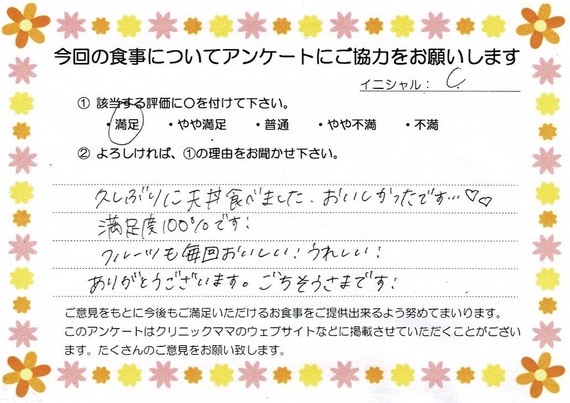 今回の食事についてアンケートにご協力をお願いします
イニシャル： C
① 該当する評価に○を付けて下さい。
・満足 ・やや満足 ・普通 ・やや不満 ・不満
② よろしければ、①の理由をお聞かせ下さい。
久しぶりに天丼食べました. おいしかったです…♡♡
満足度100%です!
フルーツも毎回おいしい! うれしい!
ありがとうございます。ごちそうさまです!
ご意見をもとに今後もご満足いただけるお食事をご提供出来るよう努めてまいります。
このアンケートはクリニックママのウェブサイトなどに掲載させていただくことがござい
ます。たくさんのご意見をお願い致します。